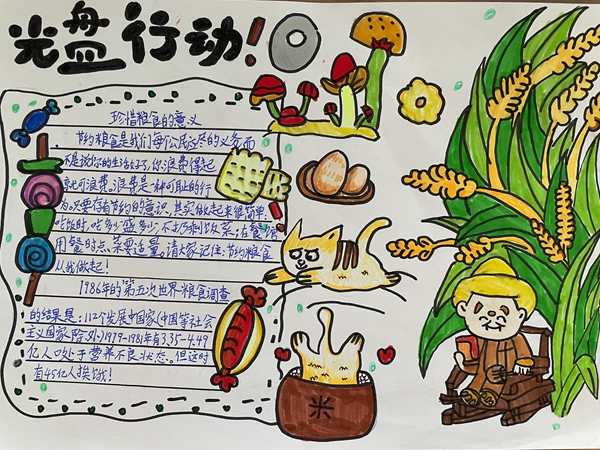 光盘行动!
珍惜粮食的意义
节约粮食是我们每个公民应尽的义务而
不是说你的生活好了,你浪费得起
就可浪费。浪费是一种可耻的行
为只要存有节约的意识,其实做起来很简单:
吃饭时,吃多少盛多少,不扔剩饭菜;在餐馆
用餐时点菜要适量。请大家记住:节约粮食
从我做起!
1986年的第五次世界粮食调查
的结果是:112个发展中国家(中国等社会
主义国家除外)1979-1981年有3.35-4.49
亿人口处于营养不良状态。但这时
有45亿人挨饿!
米